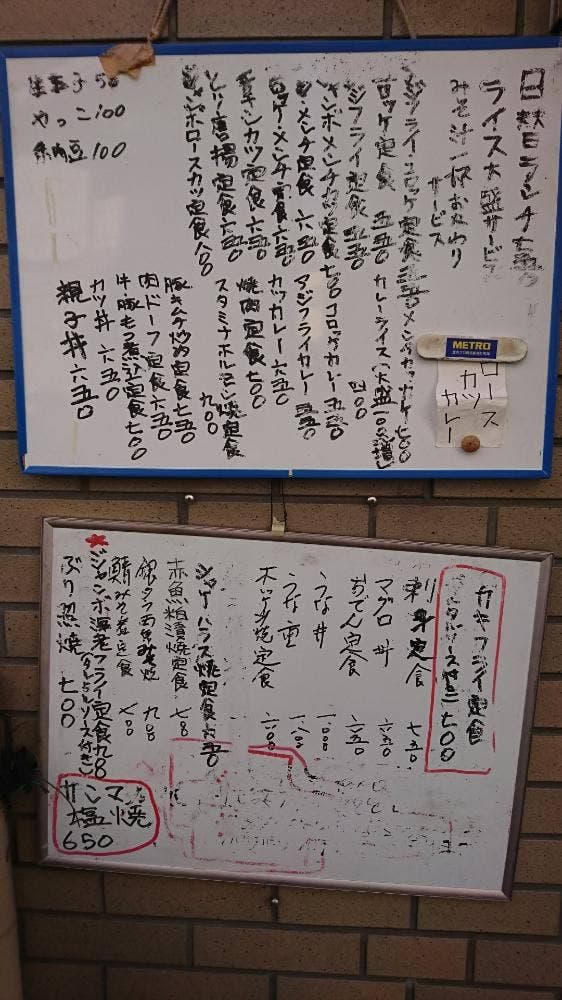 日替りランチ七五〇
ライス大盛サービス
みそ汁一杯おかわり
サービス
METRO
ロース
カツ
カレー
アジフライ・コロッケ定食 五五〇
コロッケ定食 五五〇
アジフライ定食 五五〇
ジャンボメンチカツ定食 七〇〇
メンチ定食 六五〇
コロッケ・メンチ定食 六五〇
チキンカツ定食 六五〇
とり唐揚定食 六五〇
ジャンボロースカツ定食 八〇〇
メンチカツカレー 七〇〇
カレーライス(大盛一〇〇増し)
四〇〇
コロッケカレー 五五〇
アジフライカレー 五五〇
カツカレー 六五〇
焼肉定食 七〇〇
スタミナホルモン焼定食
九〇〇
豚キムチ炒め定食 七五〇
肉ドーフ定食 六五〇
牛豚もつ煮込定食 七〇〇
カツ丼 六五〇
親子丼 六五〇
生玉子 50
やっこ 100
納豆 100
カキフライ定食
(タルタルソース付き) 七〇〇
刺身定食 七五〇
マグロ丼 六五〇
おでん定食 六五〇
うな丼 一〇〇〇
うな重
定食
シマホッケ
赤魚粕漬焼定食
銀ダラ西京みそ焼 九〇〇
鯖みそ煮定食 七〇〇
ジャンボ海老フライ定食
(タルタルソース付き)
ぶり照焼 七〇〇
サンマ
塩焼
650